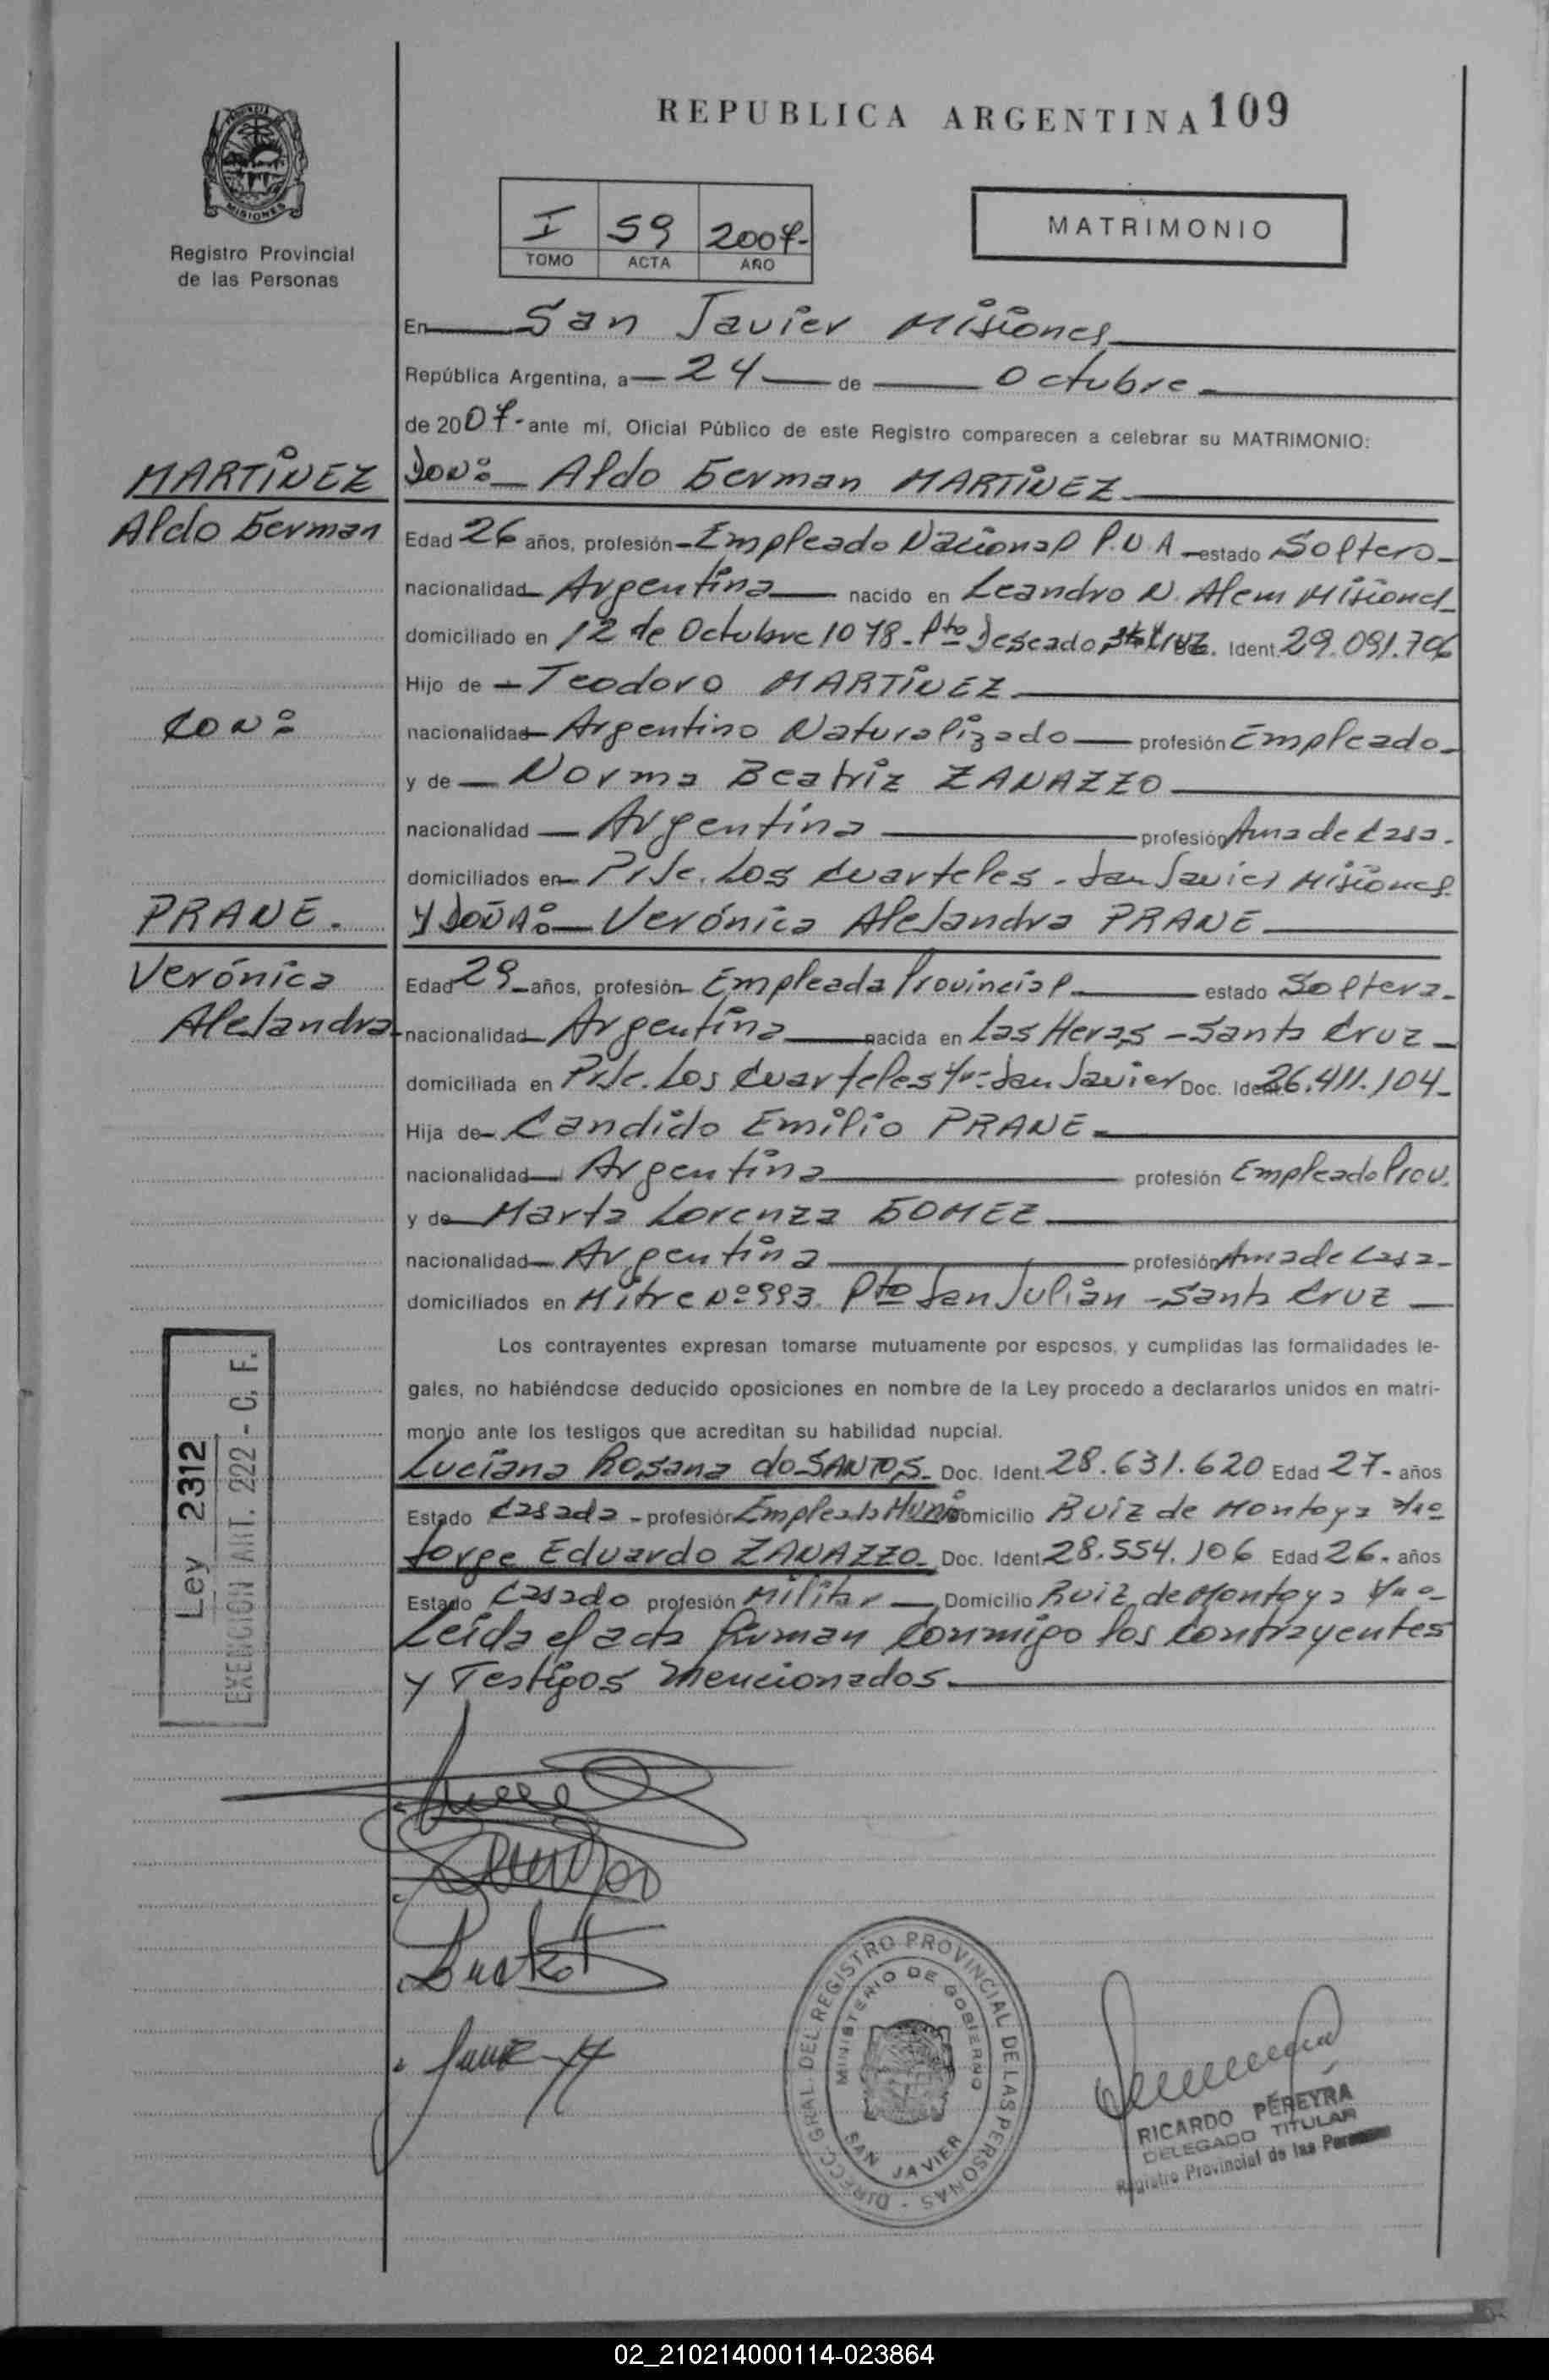 REPUBLICA ARGENTINA 109
MISIONES
Registro Provincial
de las Personas
I 59 2007-
TOMO ACTA AÑO
MATRIMONIO
En San Javier Misiones
República Argentina, a 24 de Octubre
de 2007- ante mí, Oficial Público de este Registro comparecen a celebrar su MATRIMONIO:
MARTINEZ
DON: Aldo German MARTINEZ
Aldo German
Edad 26 años, profesión Empleado Nacional P.N.A estado Soltero
nacionalidad Argentina nacido en Leandro N. Alem Misiones
domiciliado en 12 de Octubre 1078 - Pto Deseado, Sta Cruz. Ident. 29.091.706
Hijo de Teodoro MARTINEZ
CON:
nacionalidad Argentino Naturalizado profesión Empleado
y de Norma Beatriz ZANAZZO
nacionalidad Argentina profesión Ama de Casa.
domiciliados en Los Cuarteles - San Javier Misiones
PRANE.
Y DOÑA: Verónica Alejandra PRANE
Verónica
Alejandra
Edad 29 años, profesión Empleada Provincial estado Soltera
nacionalidad Argentina nacida en Las Heras - Santa Cruz
domiciliada en Los Cuarteles San Javier Doc. Ident. 26.411.104
Hija de Candido Emilio PRANE
nacionalidad Argentina profesión Empleado Prov.
y de Marta Lorenza GOMEZ
nacionalidad Argentina profesión Ama de Casa
domiciliados en Mitre Nº 993. Pto San Julián - Santa Cruz
Los contrayentes expresan tomarse mutuamente por esposos, y cumplidas las formalidades le-
gales, no habiéndose deducido oposiciones en nombre de la Ley procedo a declararlos unidos en matri-
monio ante los testigos que acreditan su habilidad nupcial.
Luciana Rosana do SANTOS Doc. Ident. 28.631.620 Edad 27 años
Estado Casada profesión Empleada Domicilio Ruiz de Montoya
Jorge Eduardo ZANAZZO Doc. Ident. 28.554.106 Edad 26 años
Estado Casado profesión Militar Domicilio Ruiz de Montoya
Leída el acta firman conmigo los contrayentes
y Testigos mencionados.
Ley 2312
EXENCION ART. 222 - C. F.
DIRECC. GRAL. DEL REGISTRO PROVINCIAL DE LAS PERSONAS
MINISTERIO DE GOBIERNO
SAN JAVIER
RICARDO PEREYRA
DELEGADO TITULAR
Registro Provincial de las
02_210214000114-023864